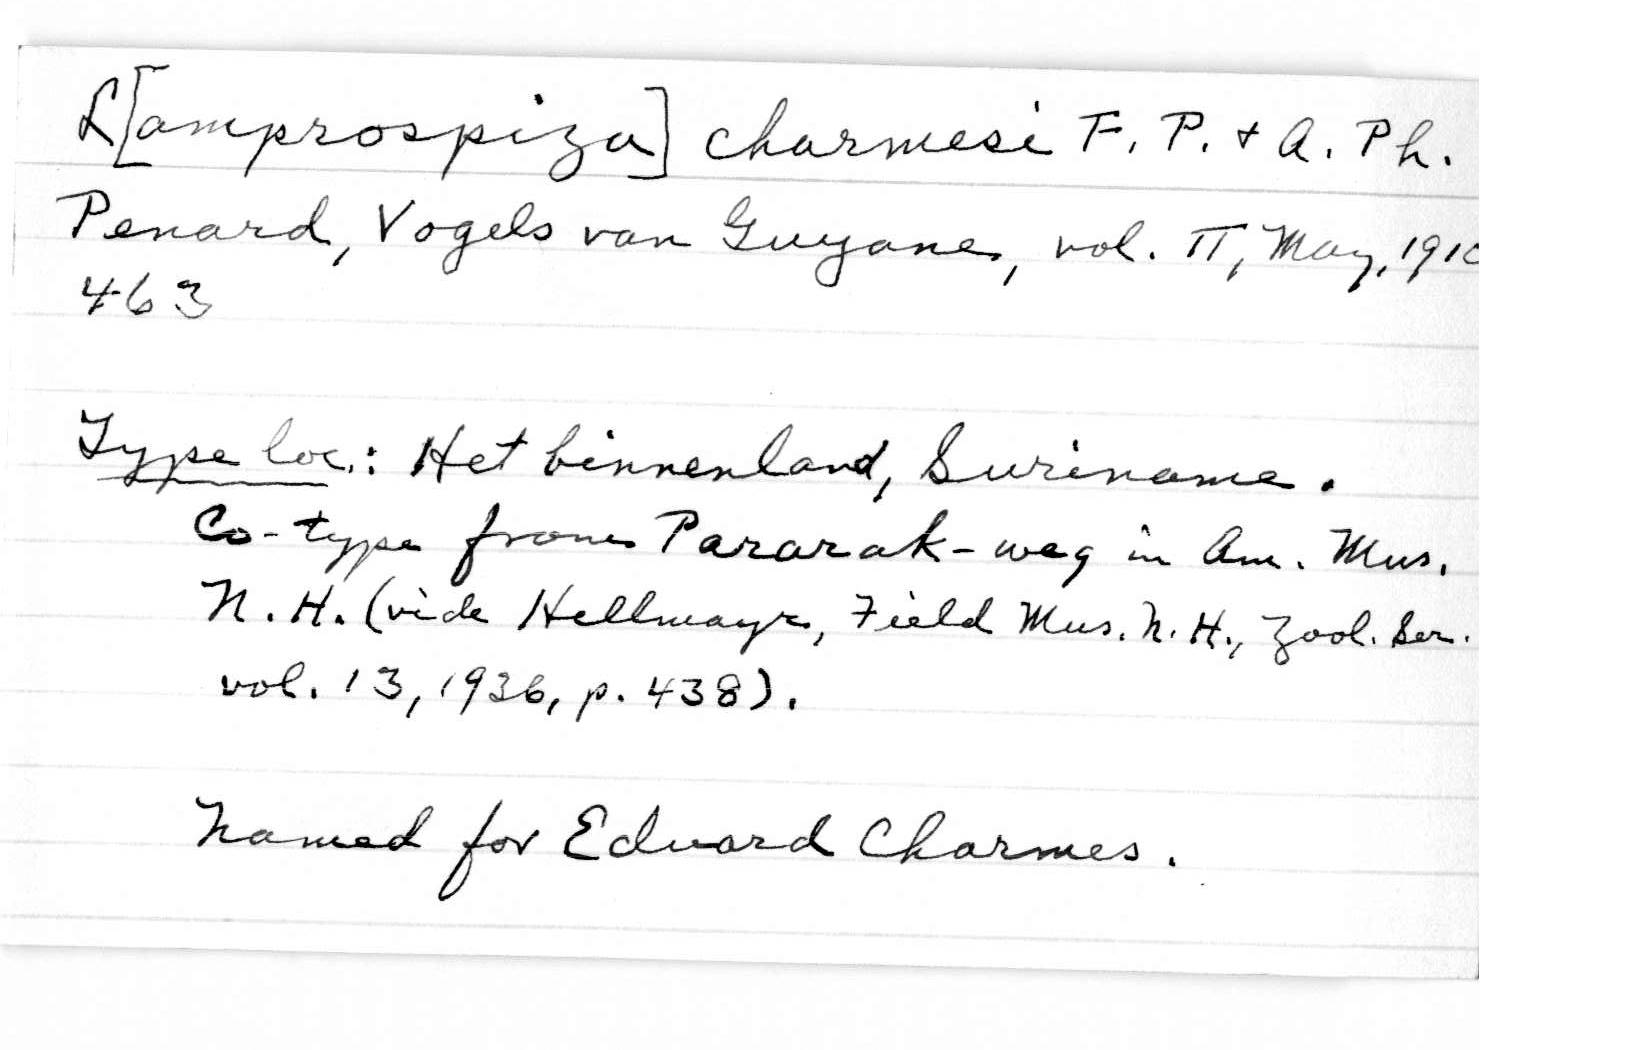 L[amprospiza] charmesi F. P. + A. Ph.
Penard, Vogels van Guyane, vol. II, May, 1910
463
Type loc.: Het binnenland, Suriname.
Co-type from Pararak-weg in Am. Mus.
N. H. (vide Hellmayr, Field Mus. N. H., Zool. Ser.
vol. 13, 1936, p. 438).
Named for Eduard Charmes.